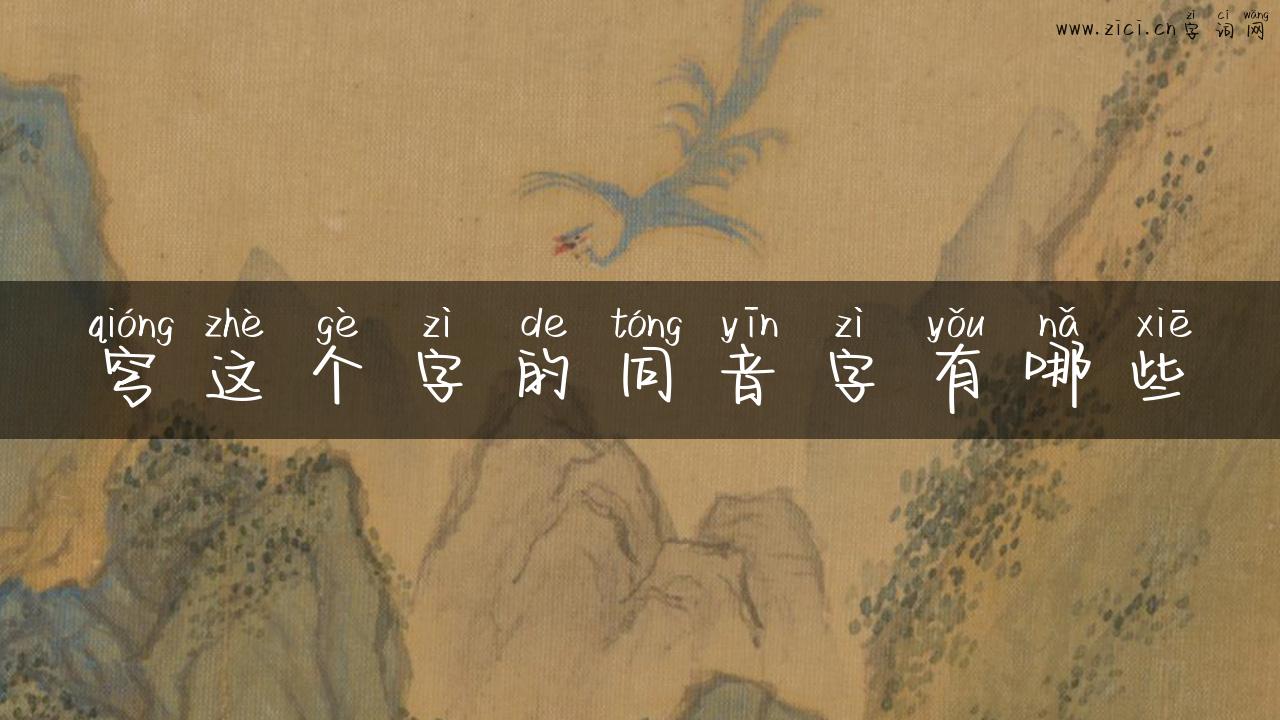 zì cí wǎng
www.zici.cn 字词网
qióng zhè gè zì de tóng yīn zì yǒu nǎ xiē
穹这个字的同音字有哪些